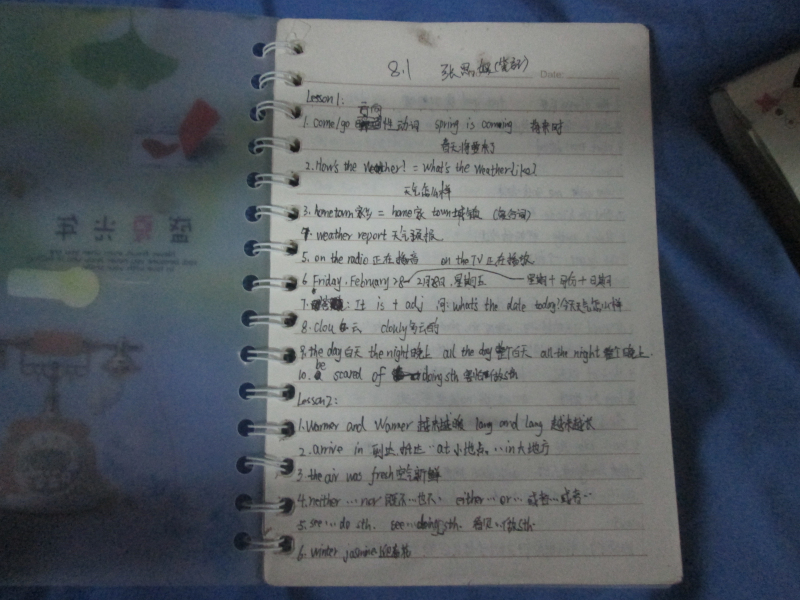 8.1
Date:
Lesson 1:
方向
1. come/go 性动词 spring is coming 将来时
春天将要来了
2. How's the weather? = what's the weather like?
天气怎么样
3. hometown 家乡 = home 家 town 城镇
4. weather report 天气预报
5. on the radio 正在播音 on the TV 正在播放
6. Friday, February 28 2月28日, 星期五 星期+月份+日期
7. : It is + adj 问: what's the date today? 今天天气怎么样
8. clou 云 clouly 多云的
9. the day 白天 the night 晚上 all the day 整个白天 all the night 整个晚上
be
10. scared of doing sth 害怕做sth
Lesson 2:
1. warmer and warmer 越来越暖 lang and lang 越来越长
2. arrive in 到达 at 小地点, in 大地方
3. the air was fresh 空气新鲜
4. neither … nor 既不…也不 either … or … 或者… 或者…
5. see … do sth. see … doing sth. 看见…做sth.
6. winter jasmine 迎春花